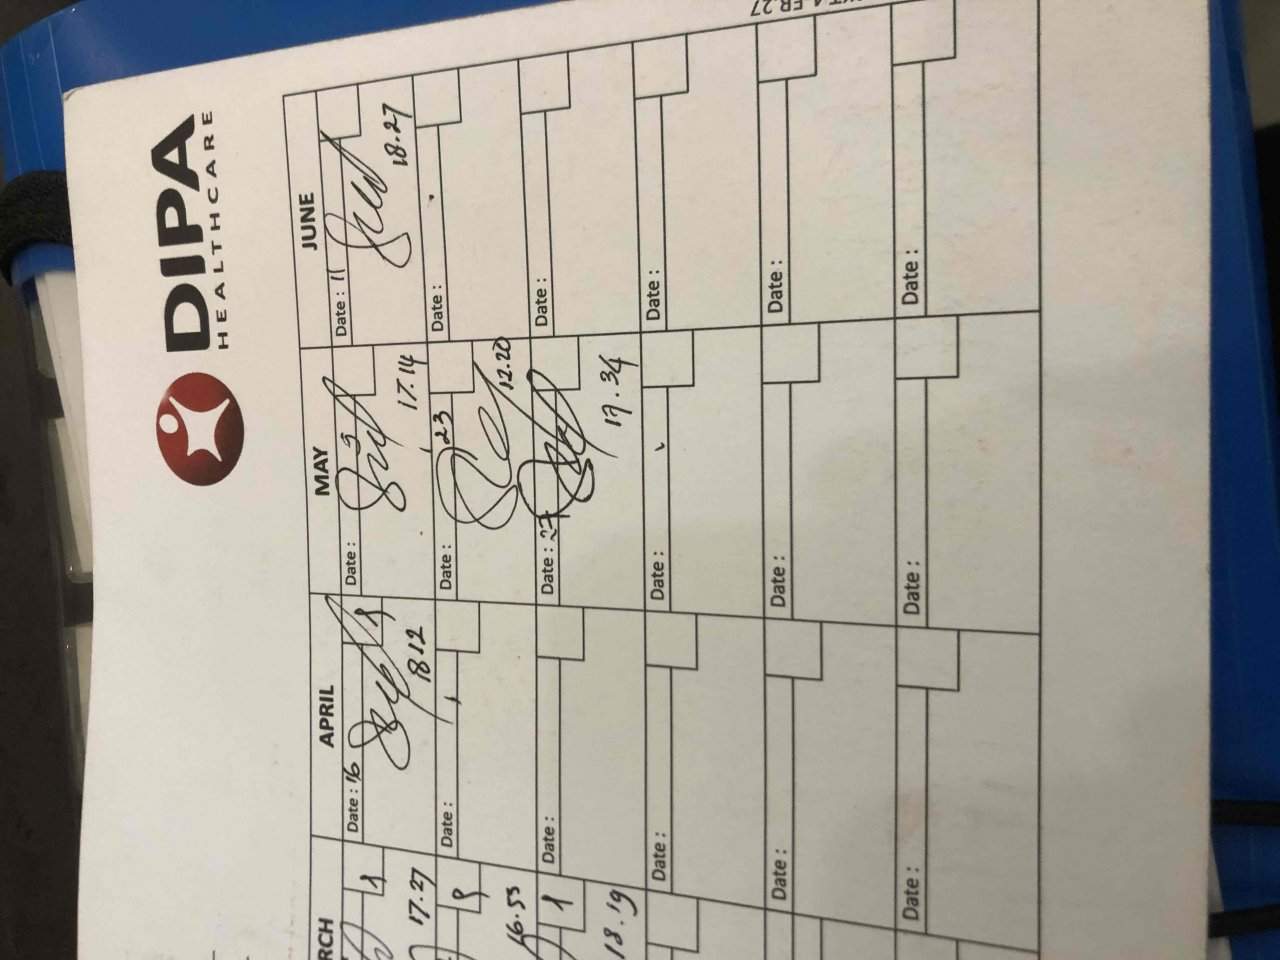 DIPA
HEALTHCARE
RCH
APRIL
MAY
JUNE
1
17.27
Date : 16
8
1812
Date :
5
17.14
Date : 11
18.27
8
16.55
Date :
Date :
23
12.20
Date :
1
18.19
Date :
Date : 27
17.34
Date :
Date :
Date :
Date :
Date :
Date :
Date :
Date :
Date :
Date :